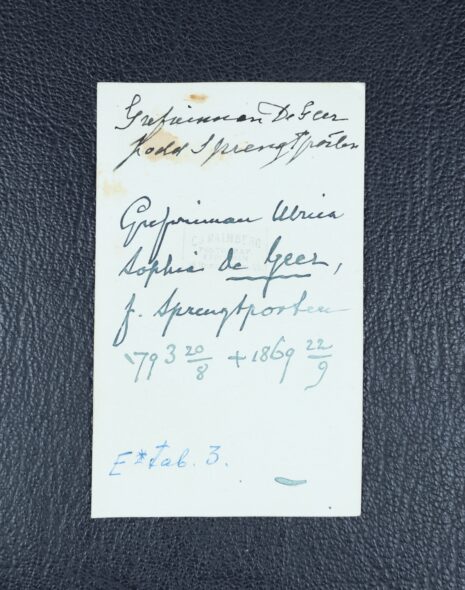 Grefvinnan De Geer
född Sprengtporten
Grefvinnan Ulrica
Sophia de Geer,
f. Sprengtporten
1793 20/8 + 1869 22/9
E* tab. 3.